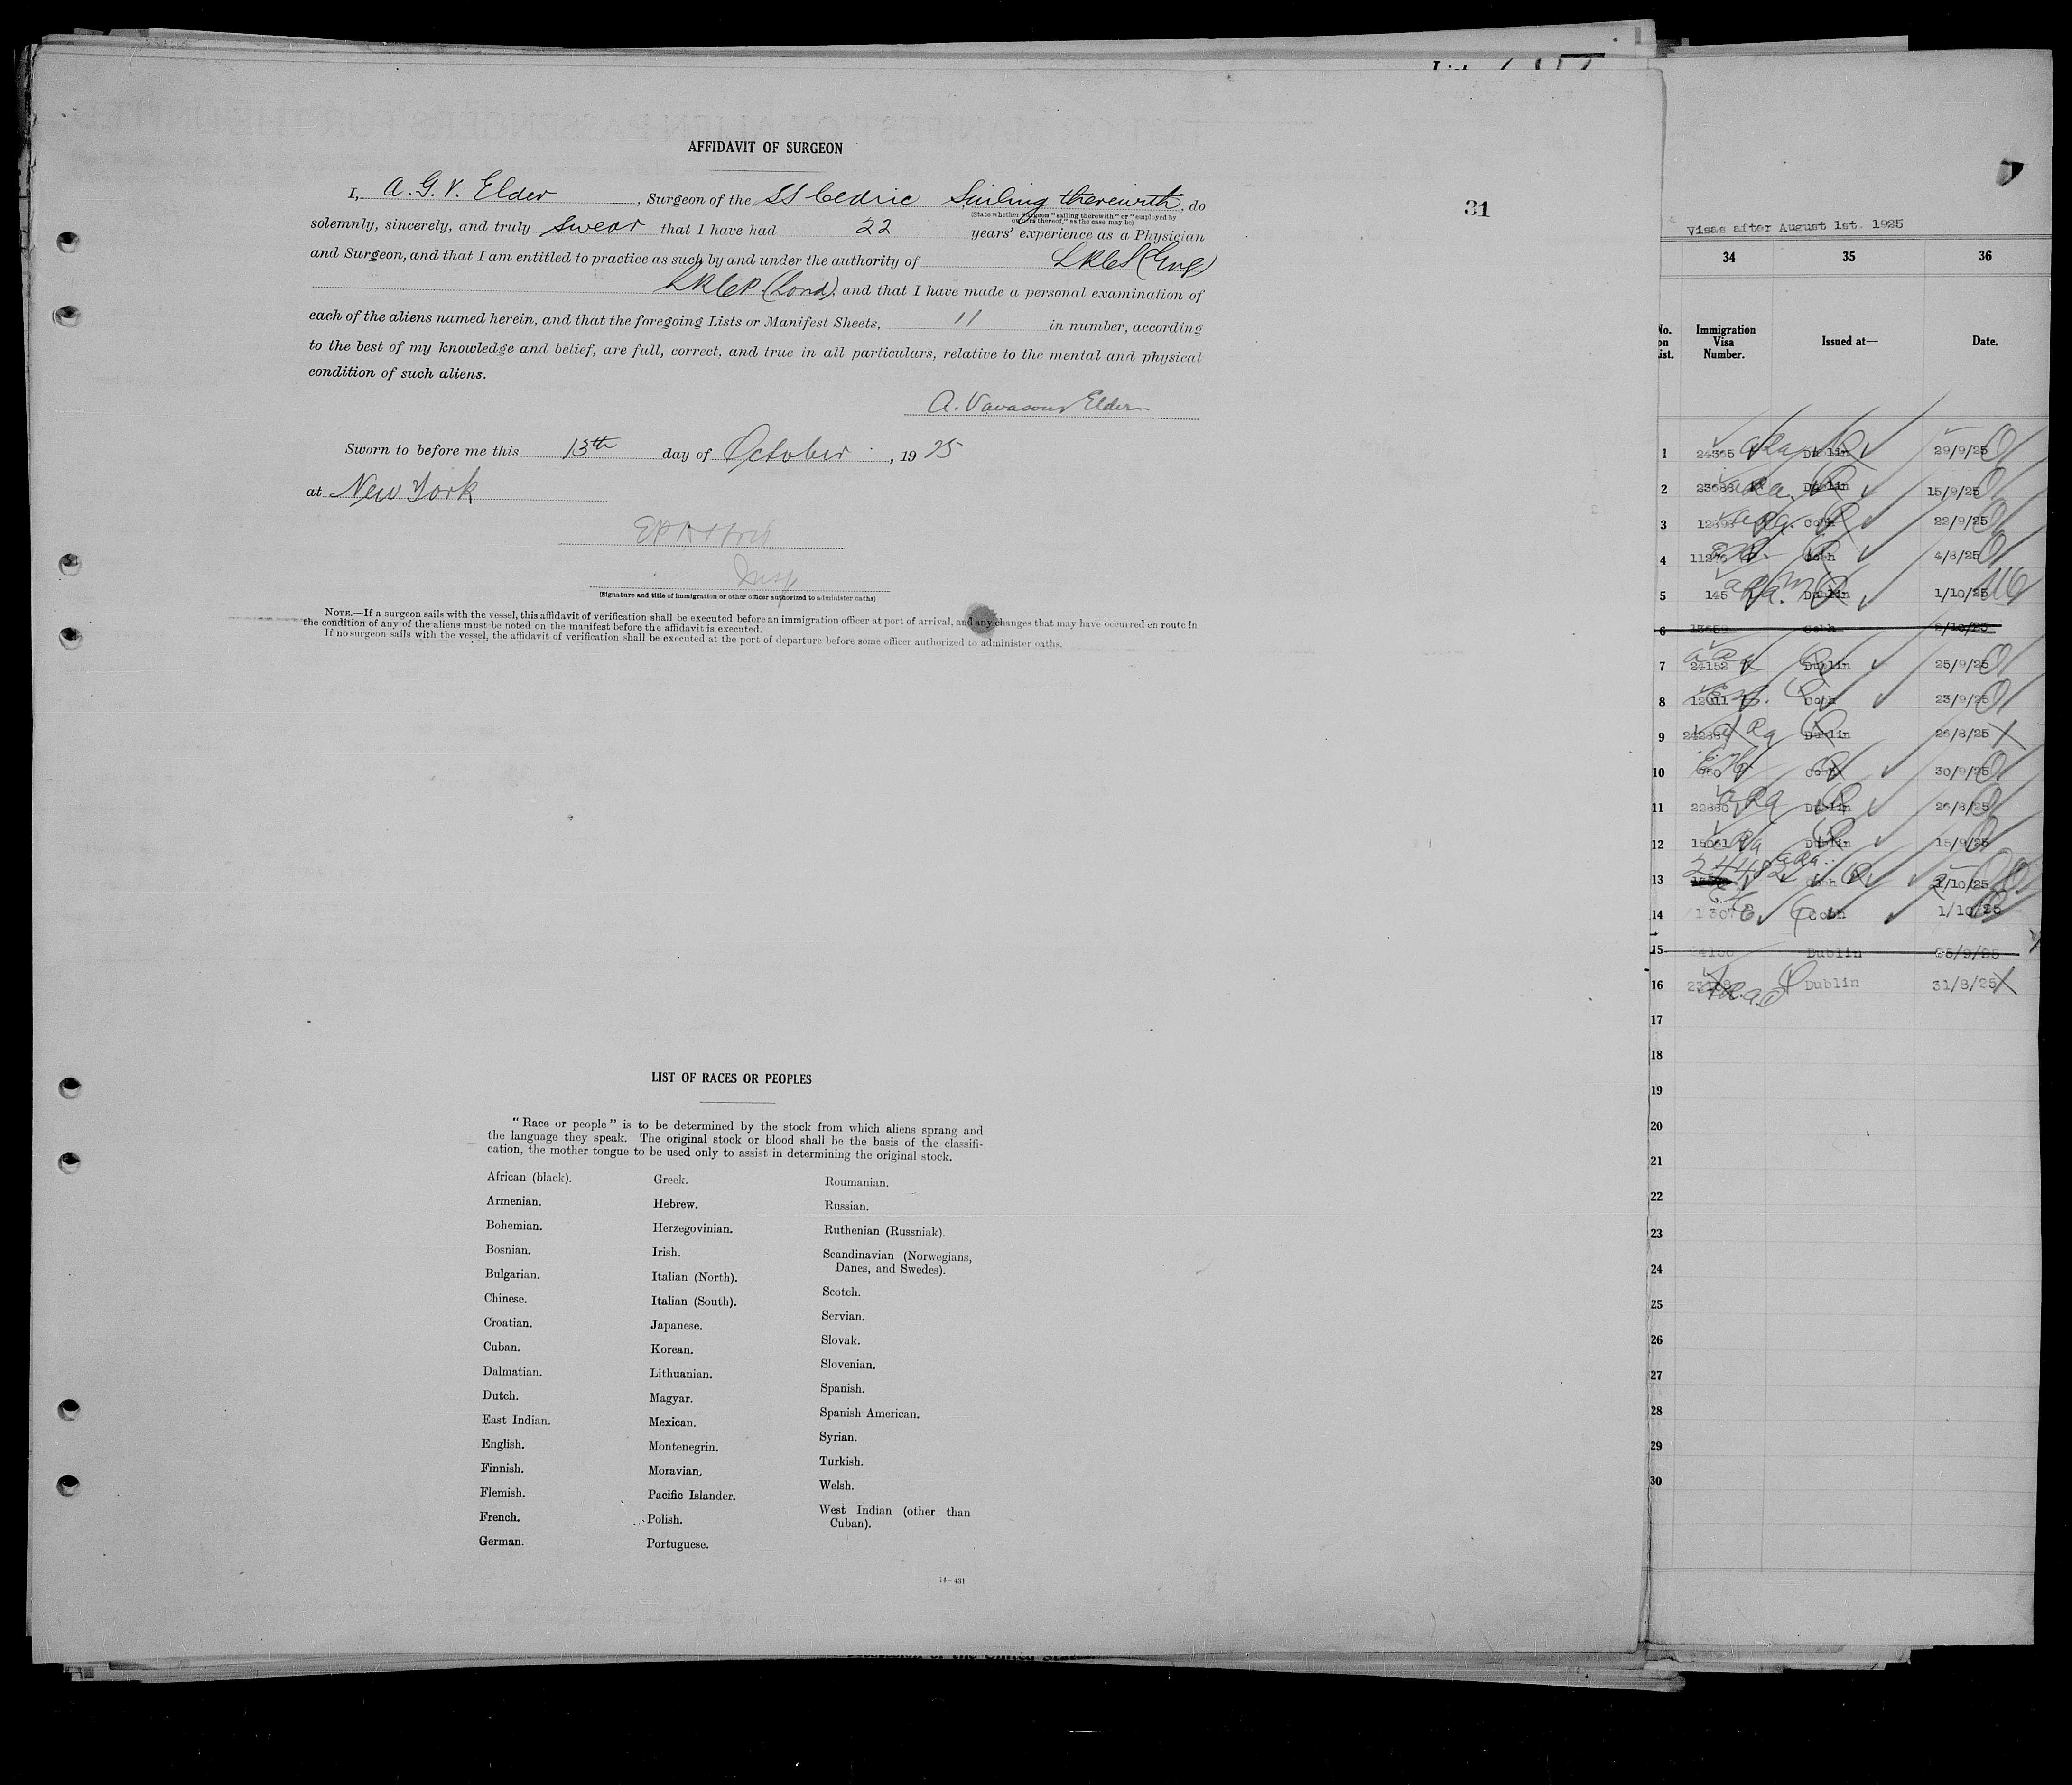 AFFIDAVIT OF SURGEON
I, A. G. V. Elder, Surgeon of the SS Cedric Sailing therewith, do
(State whether surgeon "sailing therewith" or "employed by
owners thereof," as the case may be)
solemnly, sincerely, and truly swear that I have had 22 years' experience as a Physician
and Surgeon, and that I am entitled to practice as such by and under the authority of LRCS (Eng)
LRCP. (Lond). and that I have made a personal examination of
each of the aliens named herein, and that the foregoing Lists or Manifest Sheets, 11 in number, according
to the best of my knowledge and belief, are full, correct, and true in all particulars, relative to the mental and physical
condition of such aliens.
A. Vavasour Elder
Sworn to before me this 13th day of October, 1925
at New York
Insp
(Signature and title of immigration or other officer authorized to administer oaths)
NOTE.—If a surgeon sails with the vessel, this affidavit of verification shall be executed before an immigration officer at port of arrival, and any changes that may have occurred en route in
the condition of any of the aliens must be noted on the manifest before the affidavit is executed.
If no surgeon sails with the vessel, the affidavit of verification shall be executed at the port of departure before some officer authorized to administer oaths.
31
LIST OF RACES OR PEOPLES
"Race or people" is to be determined by the stock from which aliens sprang and
the language they speak. The original stock or blood shall be the basis of the classifi-
cation, the mother tongue to be used only to assist in determining the original stock.
African (black).
Armenian.
Bohemian.
Bosnian.
Bulgarian.
Chinese.
Croatian.
Cuban.
Dalmatian.
Dutch.
East Indian.
English.
Finnish.
Flemish.
French.
German.
Greek.
Hebrew.
Herzegovinian.
Irish.
Italian (North).
Italian (South).
Japanese.
Korean.
Lithuanian.
Magyar.
Mexican.
Montenegrin.
Moravian.
Pacific Islander.
Polish.
Portuguese.
Roumanian.
Russian.
Ruthenian (Russniak).
Scandinavian (Norwegians,
Danes, and Swedes).
Scotch.
Servian.
Slovak.
Slovenian.
Spanish.
Spanish American.
Syrian.
Turkish.
Welsh.
West Indian (other than
Cuban).
14—431
Visas after August 1st. 1925
34 35 36
No. on List. Immigration Visa Number. Issued at— Date.
1 24365 Dublin 29/9/25
2 Dublin 15/9/25
3 Cobh 22/9/25
4 Cobh 4/8/25
5 145 Dublin 1/10/25
6 13659 Cobh 2/10/25
7 24152 Dublin 25/9/25
8 Cobh 23/9/25
9 Dublin 26/8/25
10 Cobh 30/9/25
11 Dublin 26/8/25
12 Dublin 15/9/25
13 24482 Cobh 1/10/25
14 Cobh 1/10/25
15 Dublin 25/9/25
16 Dublin 31/8/25
17
18
19
20
21
22
23
24
25
26
27
28
29
30